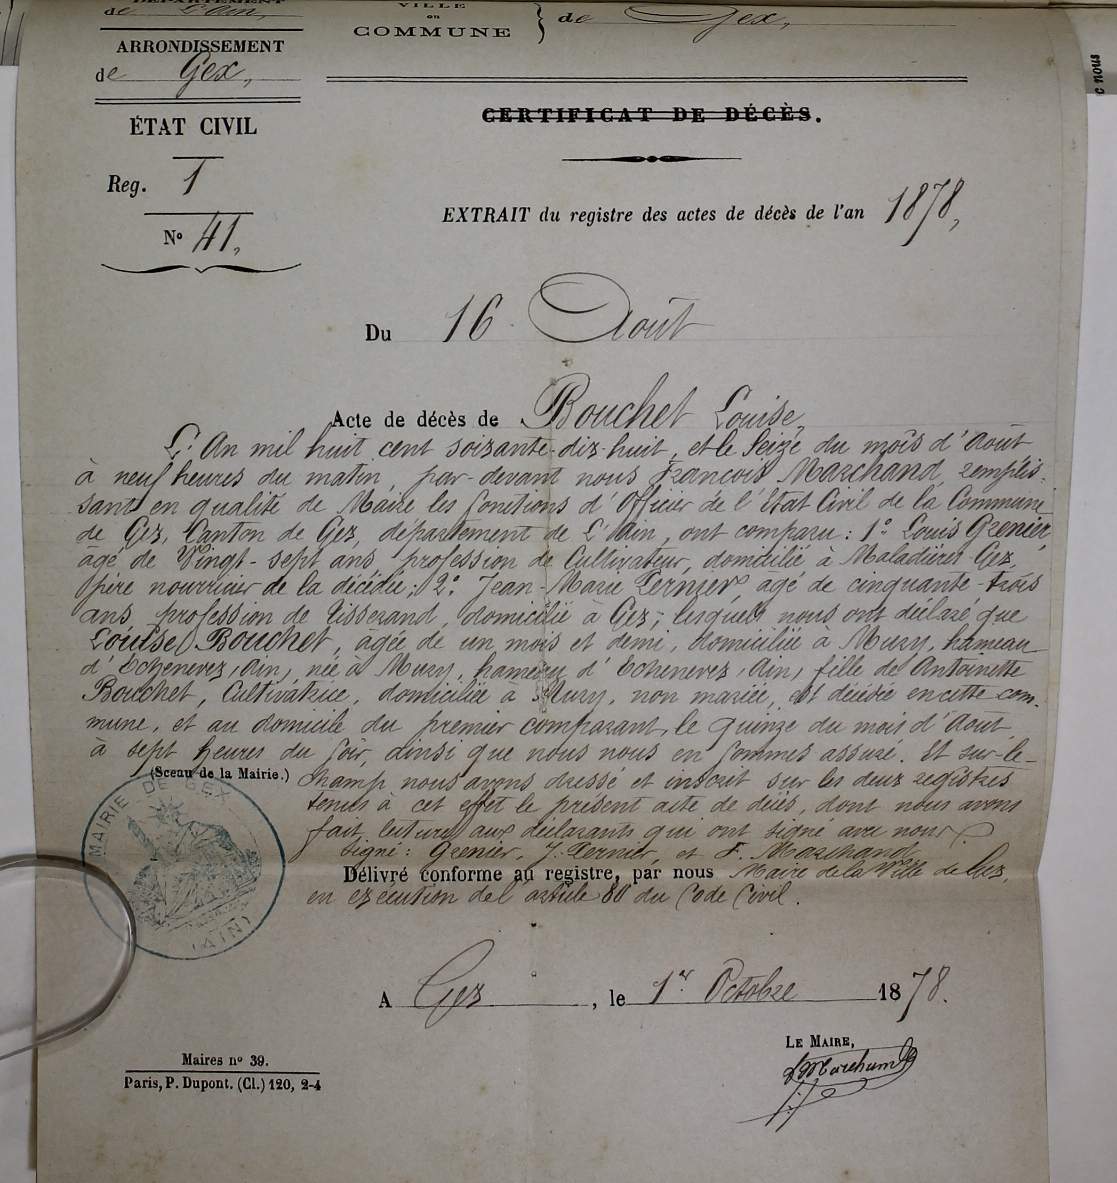 DÉPARTEMENT
de L'Ain,
VILLE
ou
COMMUNE
de Gex,
ARRONDISSEMENT
de Gex,
ÉTAT CIVIL
Reg. 1
N° 41,
CERTIFICAT DE DÉCÈS.
EXTRAIT du registre des actes de décès de l'an 1878,
Du 16 Août
Acte de décès de Bouchet Louise,
L'An mil huit cent soixante-dix-huit, et le seize du mois d'Août
à neuf heures du matin, par-devant nous François Marchand, remplis-
sant en qualité de Maire les fonctions d'Officier de l'Etat Civil de la Commune
de Gex, Canton de Gex, département de L'Ain, ont comparu : 1° Louis Grenier,
âgé de Vingt-sept ans, profession de Cultivateur, domicilié à Maladière, Gex,
père nourricier de la décédée ; 2° Jean-Marie Pernier, âgé de cinquante-trois
ans, profession de Tisserand, domicilié à Gex ; lesquels nous ont déclaré que
Louise Bouchet, agée de un mois et demi, domiciliée à Mury, hameau
d'Echenevex, Ain, née à Mury, hameau d'Echenevex, Ain, fille de Antoinette
Bouchet, Cultivatrice, domiciliée à Mury, non mariée, est décédée en cette com-
mune, et au domicile du premier comparant, le quinze du mois d'Août,
à sept heures du soir, ainsi que nous nous en sommes assuré. Et sur-le-
(Sceau de la Mairie.) champ nous avons dressé et inscrit sur les deux registres
tenus à cet effet le présent acte de décès, dont nous avons
fait lecture aux déclarants qui ont signé avec nous
Signé : Grenier, J. Pernier, et F. Marchand
Délivré conforme au registre, par nous Maire de la Ville de Gex,
en exécution de l'article 80 du Code Civil.
MAIRIE DE GEX
(AIN)
A Gex, le 1er Octobre 1878.
LE MAIRE,
F Marchand
Maires n° 39.
Paris, P. Dupont. (Cl.) 120, 2-4
c nous